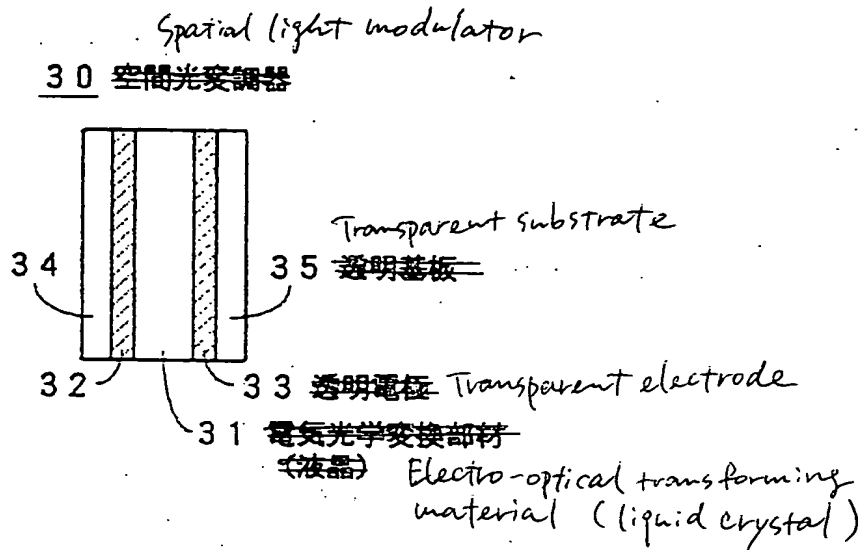 Spatial light modulator
30 空間光変調器
Transparent substrate
34 35 透明基板
32 33 透明電極 Transparent electrode
31 電気光学変換部材
(液晶) Electro-optical transforming
material (liquid crystal)